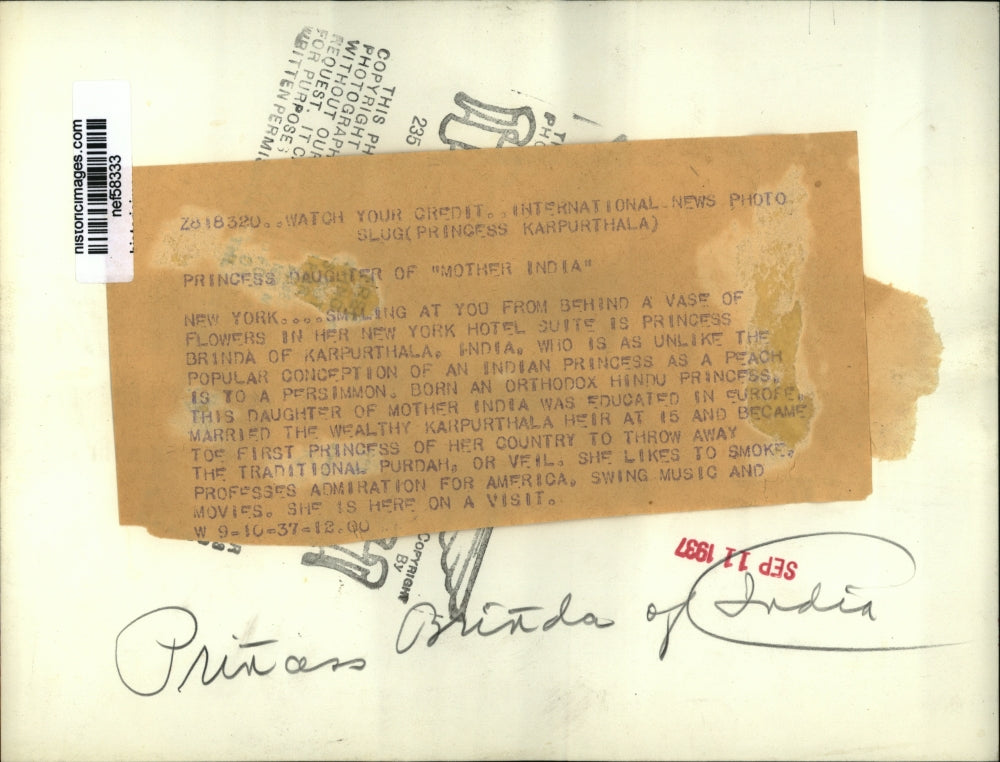 historicimages.com
nef58333
THIS PH
COPYRIGHT
PHOTOGRAPH
WITHOUT OUR
REQUEST. IT C
FOR PURPOSES
WRITTEN PERMI
235
TH
PH
Z818320..WATCH YOUR CREDIT..INTERNATIONAL NEWS PHOTO
SLUG(PRINCESS KARPURTHALA)
PRINCESS DAUGHTER OF "MOTHER INDIA"
NEW YORK....SMILING AT YOU FROM BEHIND A VASE OF
FLOWERS IN HER NEW YORK HOTEL SUITE IS PRINCESS
BRINDA OF KARPURTHALA, INDIA, WHO IS AS UNLIKE THE
POPULAR CONCEPTION OF AN INDIAN PRINCESS AS A PEACH
IS TO A PERSIMMON. BORN AN ORTHODOX HINDU PRINCESS,
THIS DAUGHTER OF MOTHER INDIA WAS EDUCATED IN EUROPE,
MARRIED THE WEALTHY KARPURTHALA HEIR AT 15 AND BECAME
TOE FIRST PRINCESS OF HER COUNTRY TO THROW AWAY
THE TRADITIONAL PURDAH, OR VEIL. SHE LIKES TO SMOKE,
PROFESSES ADMIRATION FOR AMERICA, SWING MUSIC AND
MOVIES. SHE IS HERE ON A VISIT.
W 9-10-37-12.00
COPYRIGHT
BY
SEP 11 1937
Princess Brinda of India